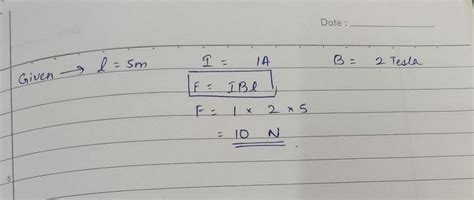 Date :
Given → l = 5m I = 1A B = 2 Tesla
F = IBl
F = 1 × 2 × 5
= 10 N
5